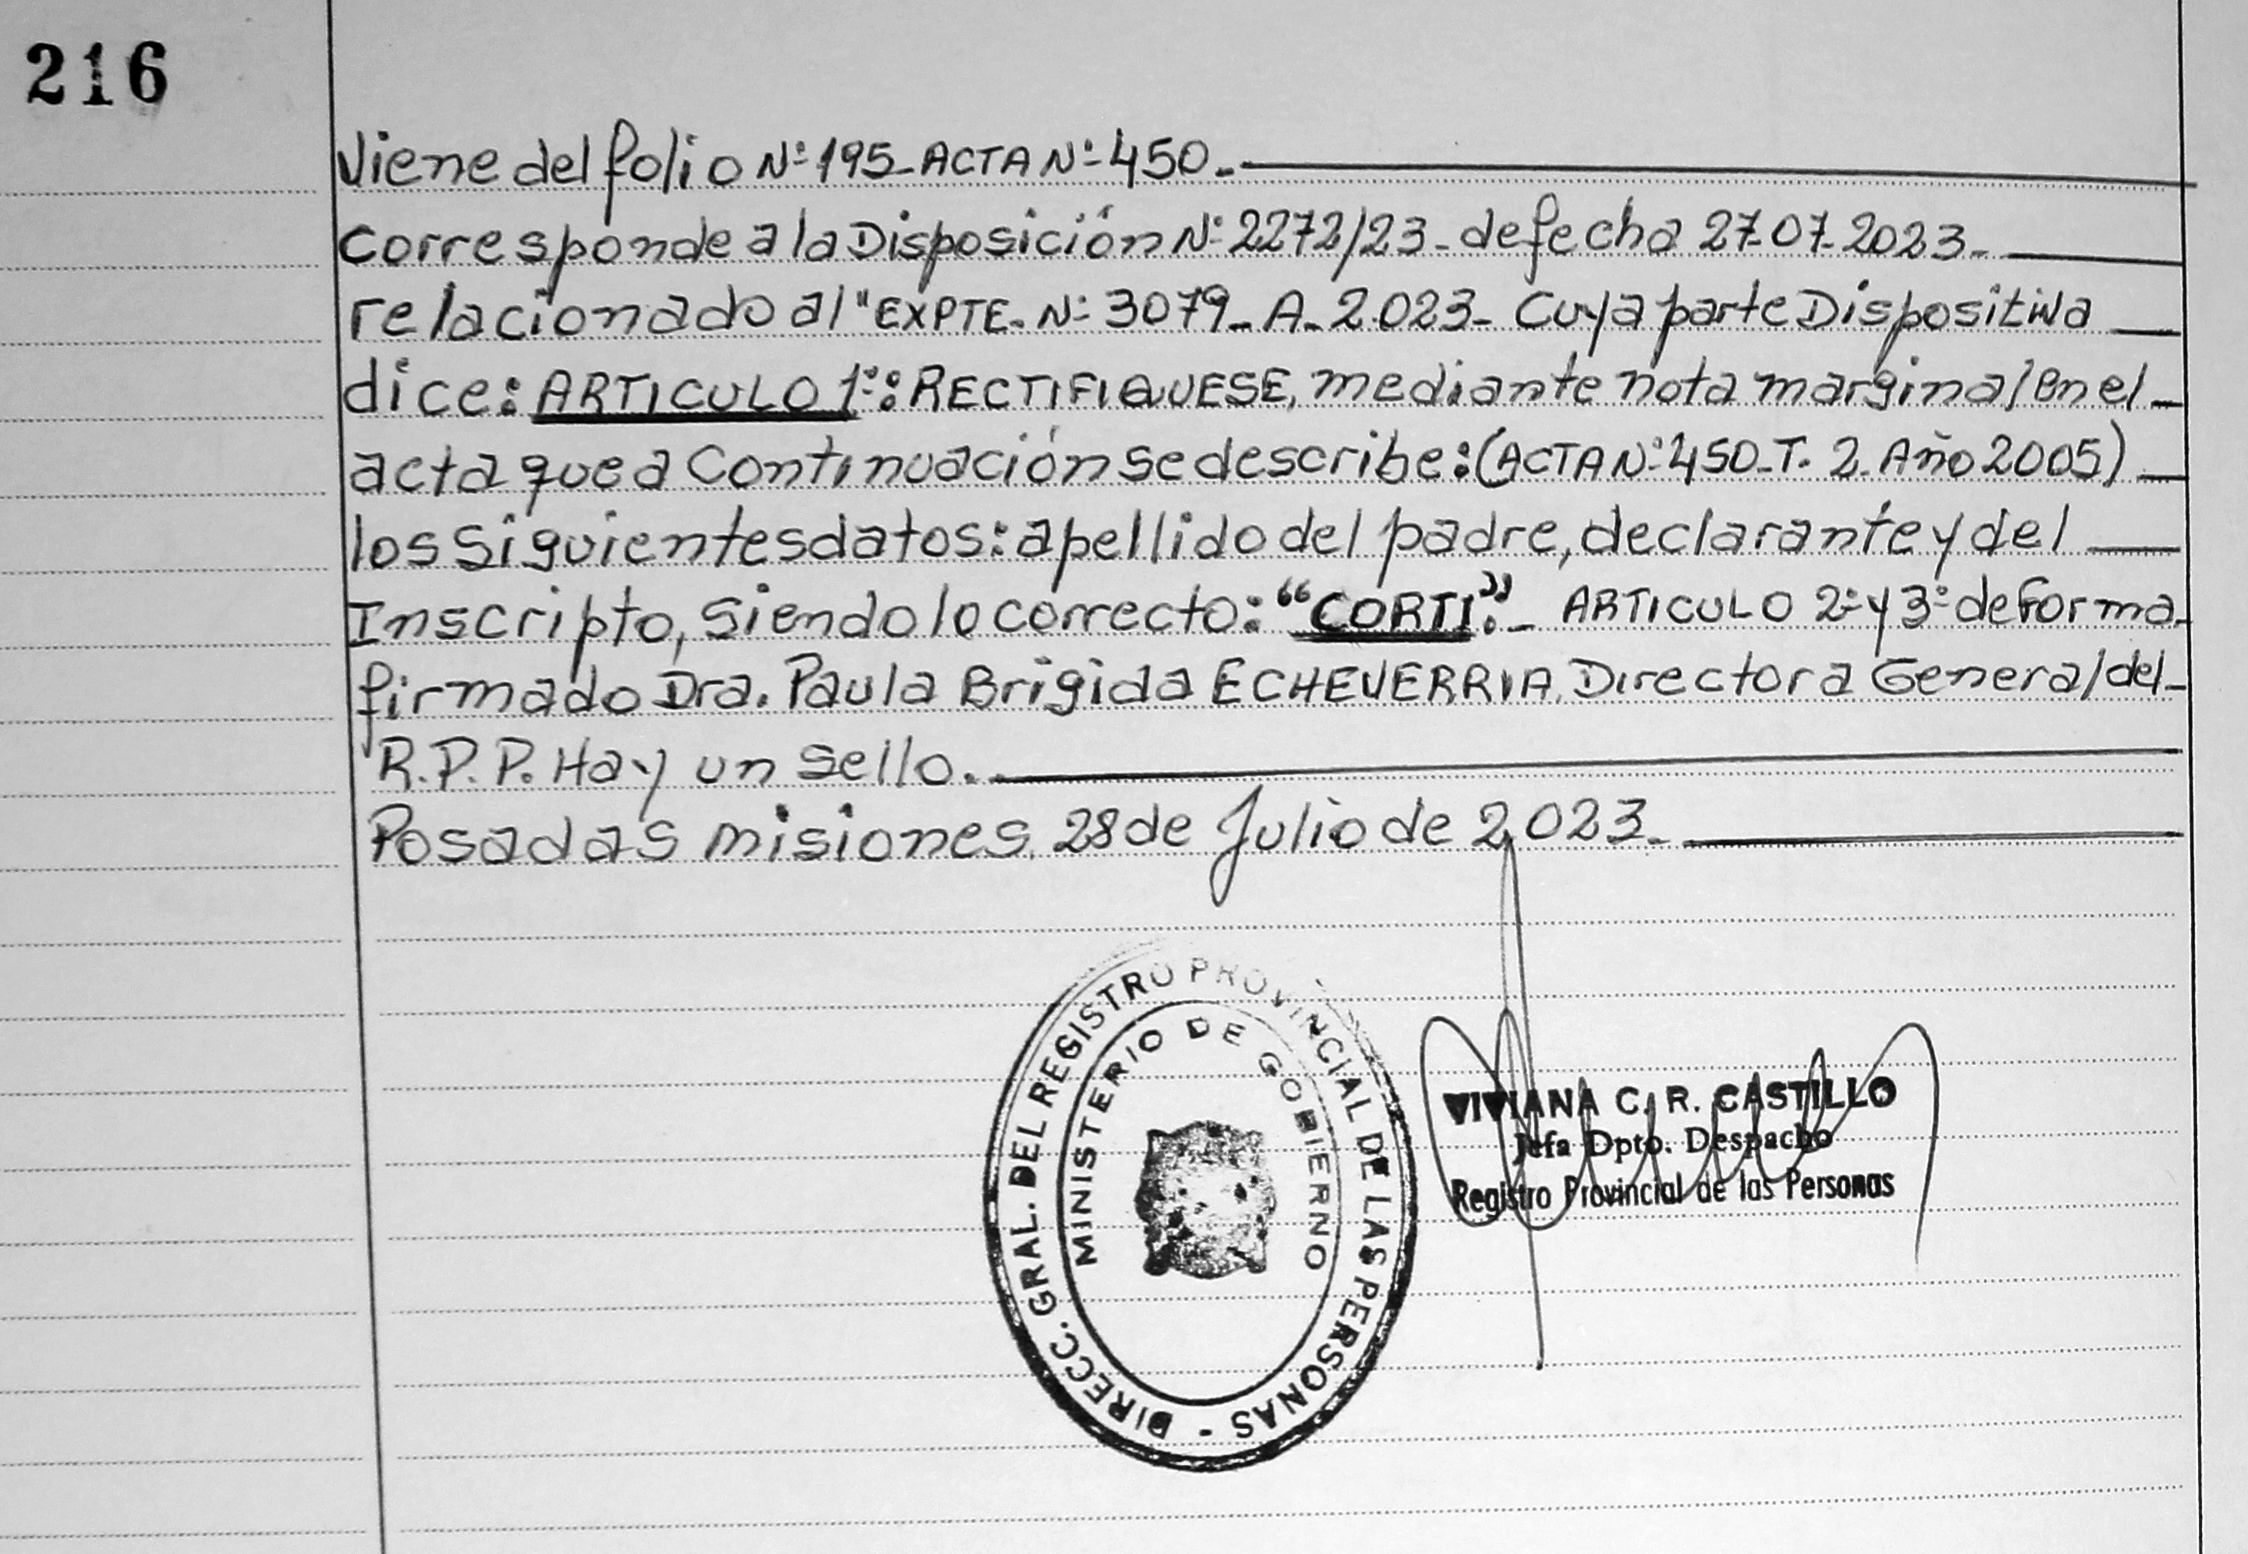 216
Viene del folio Nº 195_ ACTA Nº 450._
Corresponde a la Disposición Nº 2272/23_ de fecha 27-07-2023_
relacionado al "EXPTE. Nº 3079_ A_ 2023_ Cuya parte Dispositiva
dice: ARTICULO 1º: RECTIFIQUESE, mediante nota marginal en el
acta que a Continuación se describe: (ACTA Nº 450_T. 2_ Año 2005)
los Siguientes datos: apellido del padre, declarante y del
Inscripto, Siendo lo correcto: "CORTI"._ ARTICULO 2º y 3º de forma.
firmado Dra. Paula Brigida ECHEVERRIA, Directora General del
R.P.P. Hay un sello._
Posadas misiones, 28 de Julio de 2023._
DIRECC. GRAL. DEL REGISTRO PROVINCIAL DE LAS PERSONAS -
MINISTERIO DE GOBIERNO
VIVIANA C. R. CASTILLO
Jefa Dpto. Despacho
Registro Provincial de las Personas